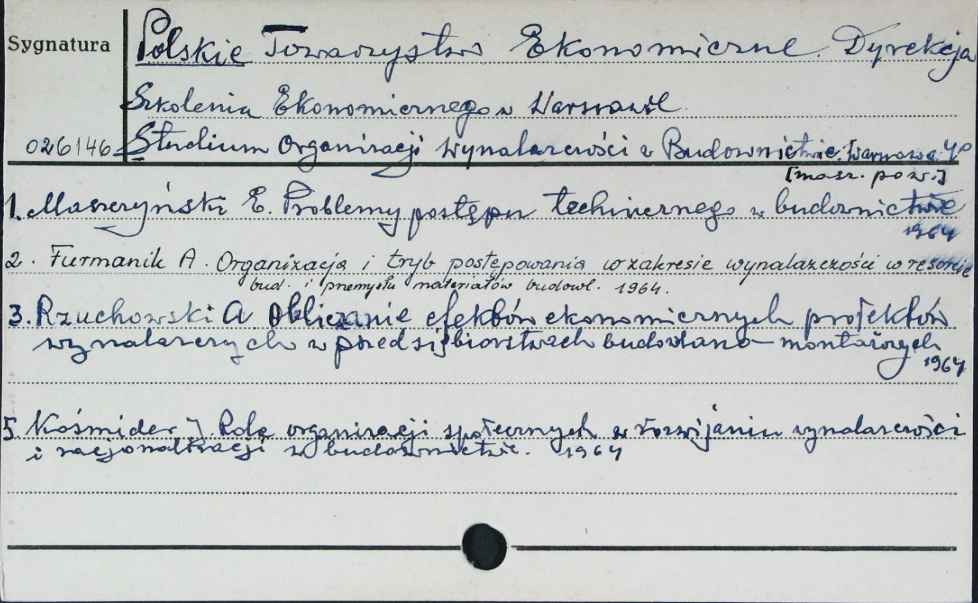 Sygnatura
Polskie Towarzystwo Ekonomiczne. Dyrekcja
Szkolenia Ekonomicznego w Warszawie
026146 Studium Organizacji Wynalazczości w Budownictwie. Warszawa 4°
[masz. pow.]
1. Maszczyński E. Problemy postępu technicznego w budownictwie
1964
2. Furmanik A. Organizacja i tryb postępowania w zakresie wynalazczości w resorcie
bud. i przemysłu materiałów budowl. 1964.
3. Rzuchowski A Obliczanie efektów ekonomicznych projektów
wynalazczych w przedsiębiorstwach budowlano-montażowych
1964
5. Kośmider J Rola organizacji społecznych w rozwijaniu wynalazczości
i racjonalizacji w budownictwie. 1964